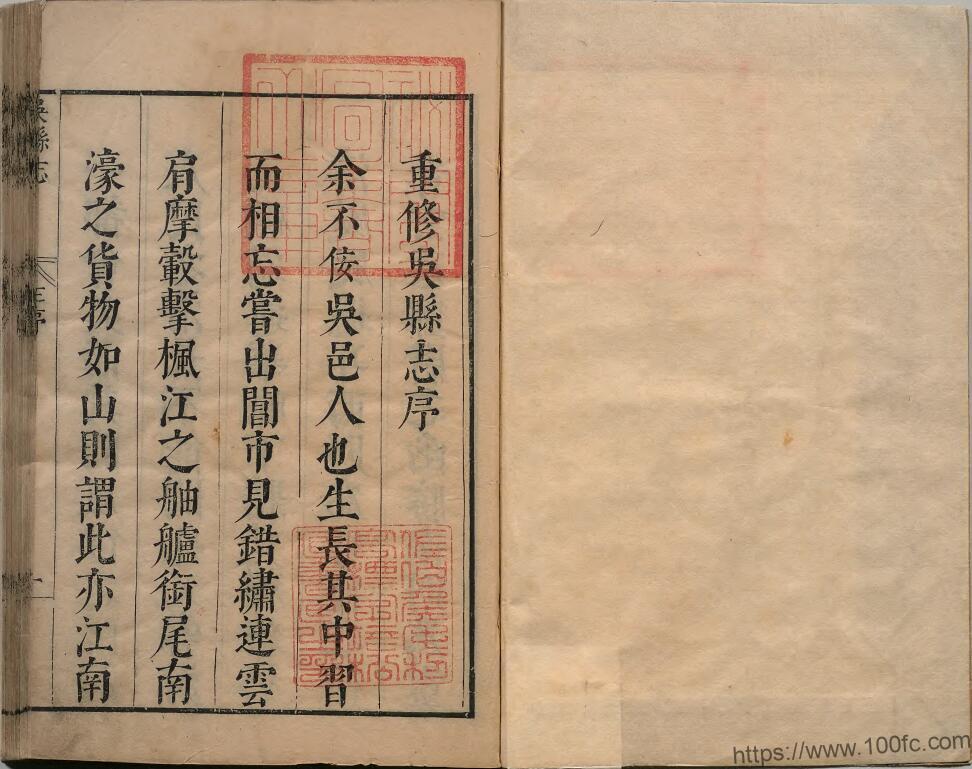 重修吳縣志序
余不佞吳邑人也生長其中習
而相忘嘗出閶市見錯繡連雲
肩摩轂擊楓江之舳艫銜尾南
濠之貨物如山則謂此亦江南
吳縣志
王序
一
https://www.100fc.com